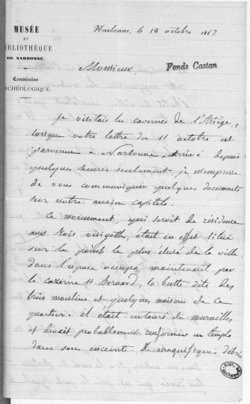 MUSÉE
ET
BIBLIOTHÈQUE
DE NARBONNE
Commission
ARCHÉOLOGIQUE.
Narbonne, le 18 octobre 1867.
Fonds Castan
Monsieur,
Je visitais les cavernes de l'Ariège,
lorsque votre lettre du 11 octobre est
parvenue à Narbonne. Arrivé depuis
quelques heures seulement, je m'empresse
de vous communiquer quelques documents
sur notre ancien capitole.
Ce monument, qui servit de résidence
aux Rois visigoths, était en effet situé
sur le point le plus élevé de la ville
dans l'espace occupé maintenant par
la caserne St Bernard, la butte dite des
trois moulins et quelques maisons de ce
quartier. Il était entouré de murailles,
et devait probablement renfermer un temple
dans son enceinte. De magnifiques débris